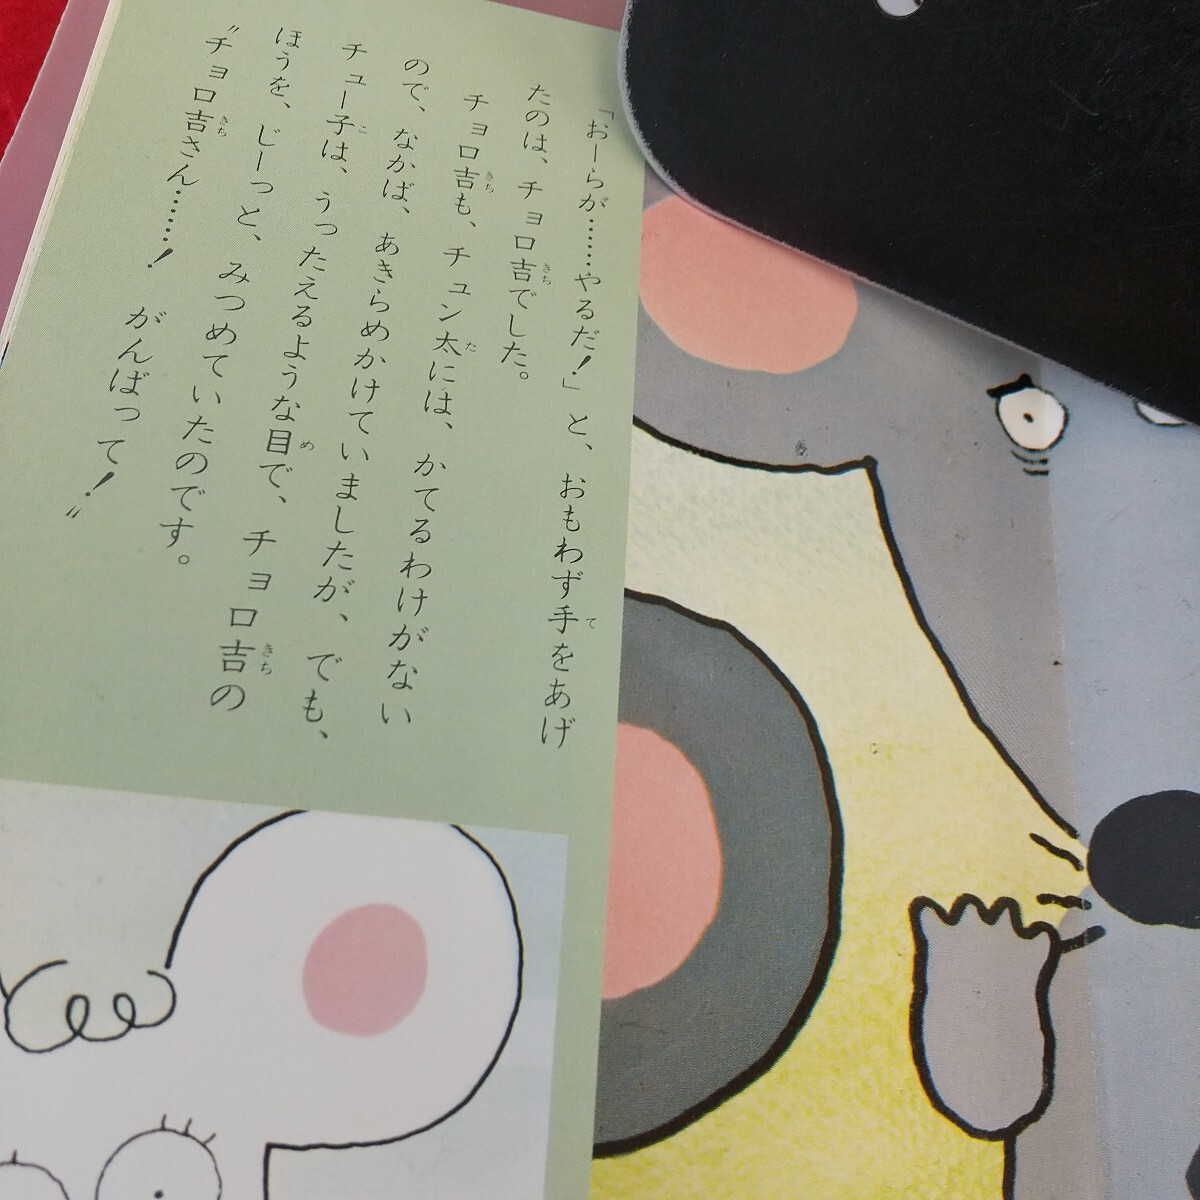 「おーらが……やるだ！」と、おもわず手をあげ
たのは、チョロ吉でした。
チョロ吉も、チュン太には、かてるわけがない
ので、なかば、あきらめかけていましたが、でも、
チュー子は、うったえるような目で、チョロ吉の
ほうを、じーっと、みつめていたのです。
〝チョロ吉さん……！　がんばって！〟